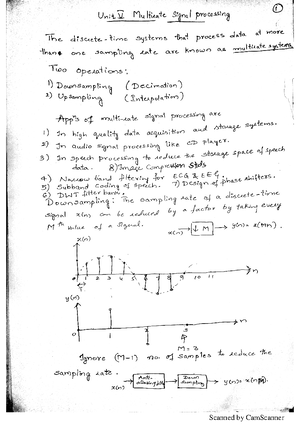 1
Unit V Multirate Signal processing
The discrete-time systems that process data at more
than one sampling rate are known as multirate systems
Two operations:
1) Downsampling (Decimation)
2) Upsampling (Interpolation)
App's of multirate signal processing are
1) In high quality data acquisition and storage systems.
2) In audio signal processing like CD player.
3) In speech processing to reduce the storage space of speech
data. 8) Image Compression Stds
4) Narrow band filtering for ECG & EEG.
5) Subband coding of speech. 7) Design of phase shifters.
6) DWT filter bank.
Downsampling: The sampling rate of a discrete-time
signal x(n) can be reduced by a factor by taking every
Mth value of a signal. x(n) ↓M y(n) = x(Mn).
x(n)
n
T
1 2 3 9 10 11
y(n)
n
1 2 3
M = 3
Ignore (M-1) no. of samples to reduce the
sampling rate.
x(n) Anti-aliasing Down sampling y(n) =
Scanned by CamScanner